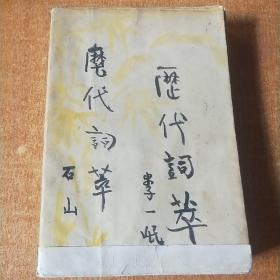 歷代詞萃
李一氓
歷代詞萃
石山